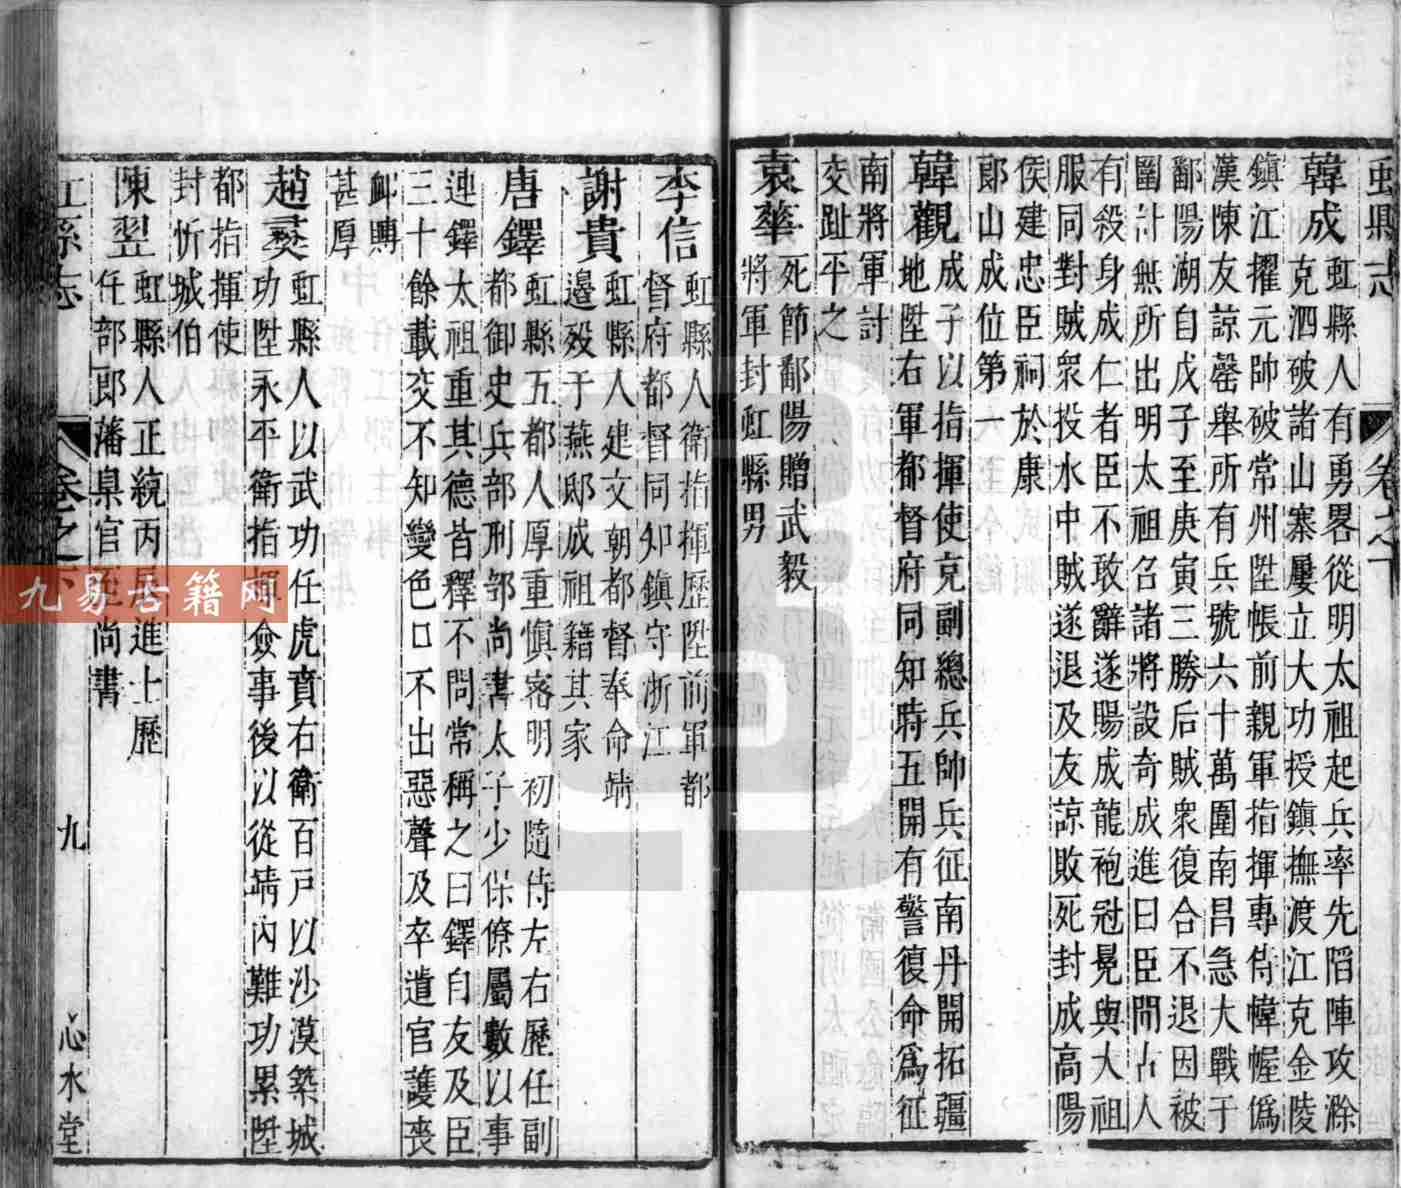 虹縣志
卷之下
韓成
虹縣人有勇畧從明太祖起兵率先陷陣攻滁
克泗破諸山寨屢立大功授鎮撫渡江克金陵
鎮江擢元帥破常州陞帳前親軍指揮專侍幃幄僞
漢陳友諒罄舉所有兵號六十萬圍南昌急大戰于
鄱陽湖自戊子至庚寅三勝后賊衆復合不退因被
圍計無所出明太祖召諸將設奇成進曰臣聞古人
有殺身成仁者臣不敢辭遂賜成龍袍冠冕與太祖
服同對賊衆投水中賊遂退及友諒敗死封成高陽
侯建忠臣祠於康
郎山成位第六
韓觀
成子以指揮使克副總兵帥兵征南丹開拓疆
地陞右軍都督府同知時五開有警復命爲征
南將軍討
交趾平之
袁華
死節鄱陽贈武毅
將軍封虹縣男
李信
虹縣人衛指揮歷陞前軍都
督府都督同知鎮守浙江
謝貴
虹縣人建文朝都督奉命靖
邊歿于燕邸成祖籍其家
唐鐸
虹縣五都人厚重愼密明初隨侍左右歷任副
都御史兵部刑部尚書太子少保僚屬數以事
連鐸太祖重其德皆釋不問常稱之曰鐸自友及臣
三十餘載交不知變色口不出惡聲及卒遣官護喪
卹賻
甚厚
趙彛
虹縣人以武功任虎賁右衛百戸以沙漠築城
功陞永平衛指揮僉事後以從靖內難功累陞
都指揮使
封忻城伯
陳翌
虹縣人正統丙辰進士歷
任部郎藩臬官至尚書
虹縣志
卷之下
九
心水堂
九易古籍网